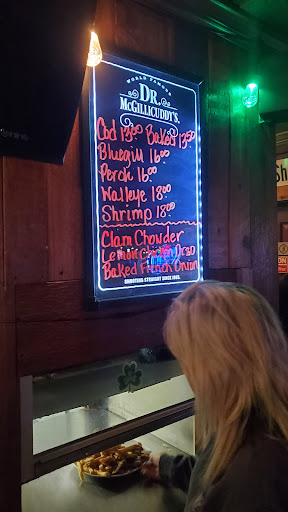 WORLD FAMOUS
DR.
McGILLICUDDY'S.
Cod 13.00 Baked 13.50
Bluegill 16.00
Perch 16.00
Walleye 18.00
Shrimp 18.00
Clam Chowder
Lemon Chicken Orzo
Baked French Onion
SHOOTING STRAIGHT SINCE 1865.
Sh
ON